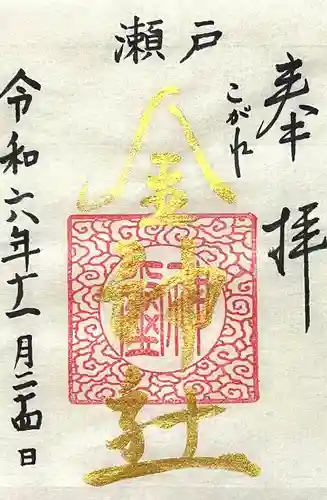 奉拝
瀬戸
こがれ
金神社
令和六年十一月二十四日